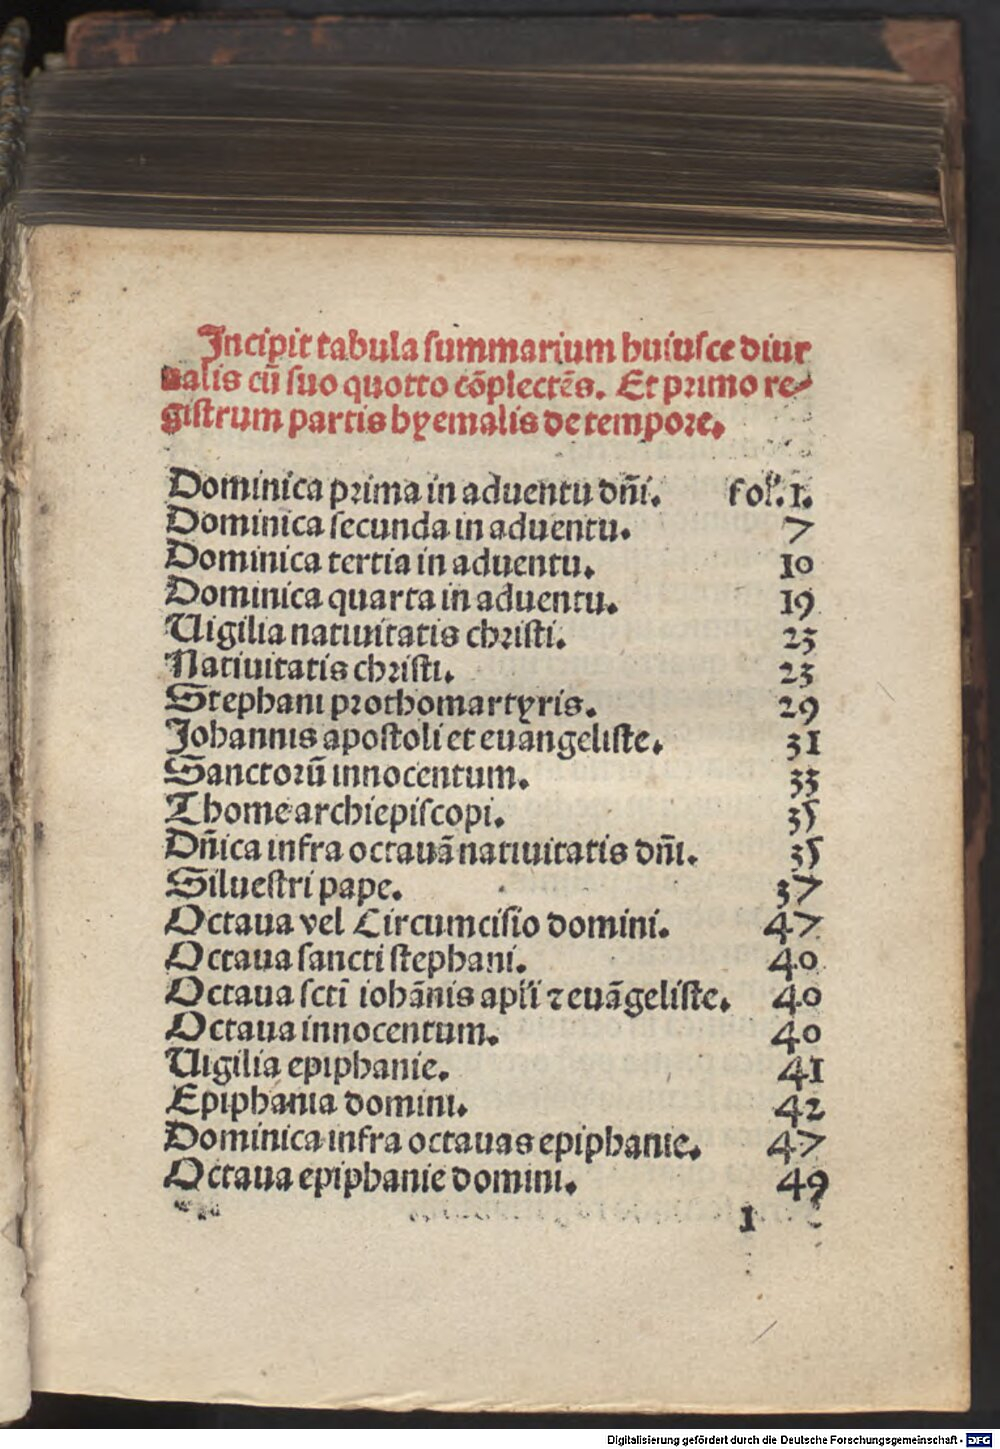 Incipit tabula summarium huiusce diur
nalis cũ suo quotto cõplectẽs. Et primo re-
gistrum partis hyemalis de tempore.
Dominica prima in aduentu dñi. fol. 1.
Dominica secunda in aduentu. 7
Dominica tertia in aduentu. 10
Dominica quarta in aduentu. 19
Uigilia natiuitatis christi. 23
Natiuitatis christi. 23
Stephani prothomartyris. 29
Johannis apostoli et euangeliste. 31
Sanctorũ innocentum. 33
Thome archiepiscopi. 35
Dñica infra octauã natiuitatis dñi. 35
Siluestri pape. 37
Octaua vel Circumcisio domini. 47
Octaua sancti stephani. 40
Octaua scti iohãnis apli ⁊ euãgeliste. 40
Octaua innocentum. 40
Uigilia epiphanie. 41
Epiphania domini. 42
Dominica infra octauas epiphanie. 47
Octaua epiphanie domini. 49
1
Digitalisierung gefördert durch die Deutsche Forschungsgemeinschaft - DFG